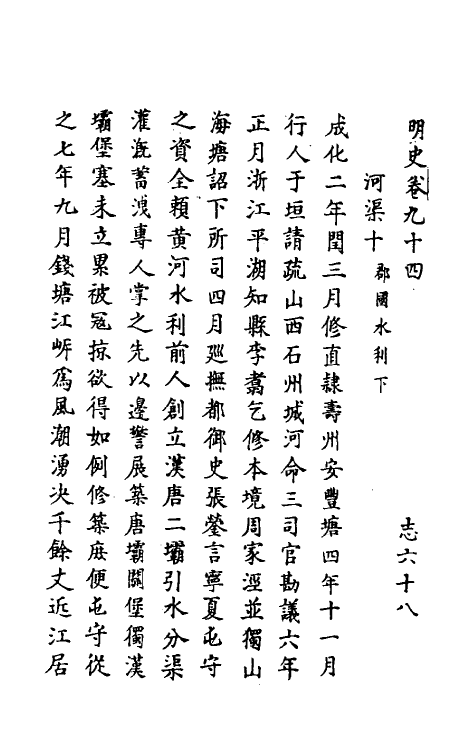 明史卷九十四　志六十八
河渠十　郡國水利下
成化二年閏三月修直隷壽州安豐塘四年十一月
行人于垣請疏山西石州城河命三司官勘議六年
正月浙江平湖知縣李翥乞修本境周家涇並獨山
海塘詔下所司四月廵撫都御史張鎣言寧夏屯守
之資全賴黄河水利前人創立漢唐二壩引水分渠
灌漑蓄洩專人掌之先以邊警展築唐壩關堡獨漢
壩堡塞未立累被冦掠欲得如例修築庶便屯守從
之七年九月錢塘江㟁爲風潮湧决千餘丈近江居